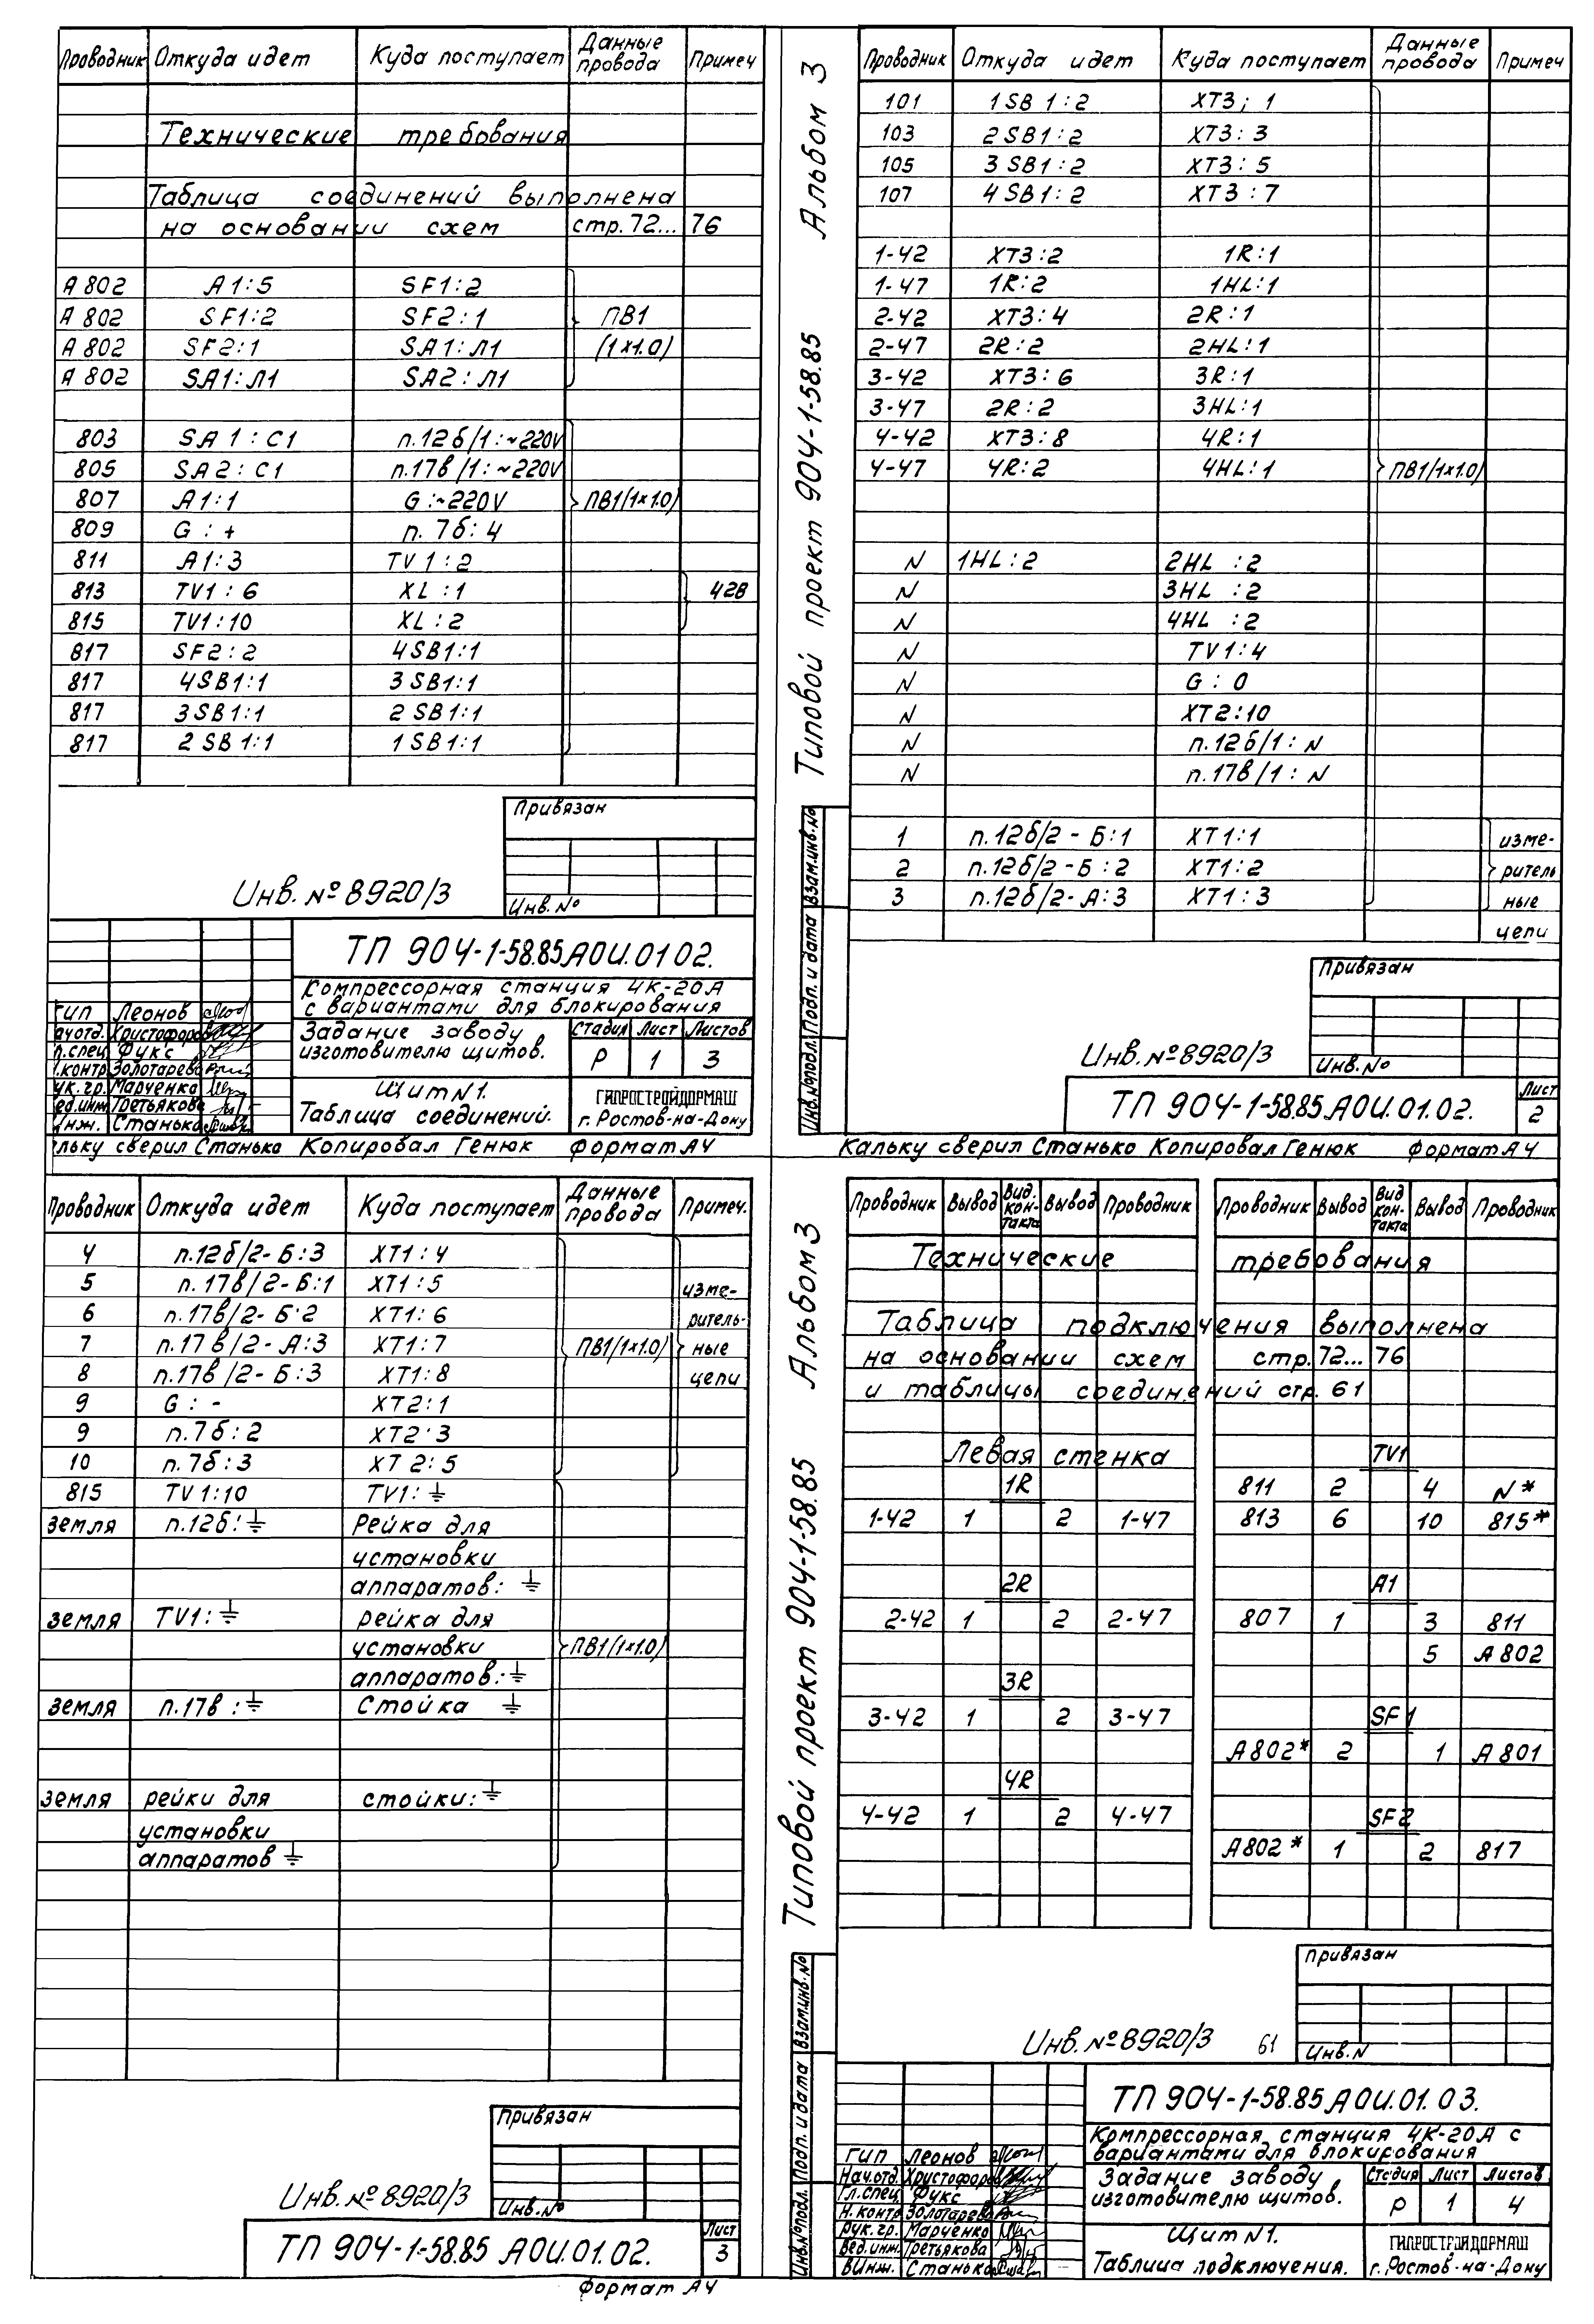 Проводник Откуда идет Куда поступает Данные провода Примеч
Технические требования
Таблица соединений выполнена
на основании схем стр.72... 76
А 802 А1:5 SF1:2
А 802 SF1:2 SF2:1 ПВ1
А 802 SF2:1 SA1:Л1 (1х1.0)
А 802 SA1:Л1 SA2:Л1
803 SA1:C1 п.12б/1:~220V
805 SA2:C1 п.17в/1:~220V
807 А1:1 G:~220V ПВ1(1х1.0)
809 G:+ п.7б:4
811 А1:3 TV1:2
813 TV1:6 XL:1 42В
815 TV1:10 XL:2
817 SF2:2 4SB1:1
817 4SB1:1 3SB1:1
817 3SB1:1 2SB1:1
817 2SB1:1 1SB1:1
Привязан
Инв.№
Инв.№8920/3
ТП 904-1-58.85 АОИ.01 02.
Компрессорная станция 4К-20А
с вариантами для блокирования
Задание заводу
изготовителю щитов.
Стадия Лист Листов
Р 1 3
Щит N1.
Таблица соединений.
ГИПРОСТРОЙДОРМАШ
г.Ростов-на-Дону
ГИП Леонов
ач.отд. Христофоров
л.спец Фукс
.контр Золотарева
ук.гр. Марченко
ед.инж Третьякова
инж. Станько
льку сверил Станько Копировал Генюк Формат А4
Типовой проект 904-1-58.85 Альбом 3
Проводник Откуда идет Куда поступает Данные провода Примеч
101 1SB1:2 XT3; 1
103 2SB1:2 XT3:3
105 3SB1:2 XT3:5
107 4SB1:2 XT3:7
1-42 XT3:2 1R:1
1-47 1R:2 1HL:1
2-42 XT3:4 2R:1
2-47 2R:2 2HL:1
3-42 XT3:6 3R:1
3-47 2R:2 3HL:1
4-42 XT3:8 4R:1
4-47 4R:2 4HL:1 ПВ1(1х1.0)
N 1HL:2 2HL:2
N 3HL:2
N 4HL:2
N TV1:4
N G:0
N XT2:10
N п.12б/1:N
N п.17в/1:N
1 п.12б/2-Б:1 XT1:1 изме-
2 п.12б/2-Б:2 XT1:2 ритель
3 п.12б/2-А:3 XT1:3 ные
цепи
Привязан
Инв.№
Инв.№8920/3
Инв.№подл. Подп. и дата Взам.инв.№
ТП 904-1-58.85.АОИ.01.02.
Лист
2
Кальку сверил Станько Копировал Генюк Формат А4
Проводник Откуда идет Куда поступает Данные провода Примеч.
4 п.12б/2-Б:3 XT1:4
5 п.17в/2-Б:1 XT1:5 изме-
6 п.17в/2-Б:2 XT1:6 ритель-
7 п.17в/2-А:3 XT1:7 ПВ1(1х1.0) ные
8 п.17в/2-Б:3 XT1:8 цепи
9 G:- XT2:1
9 п.7б:2 XT2:3
10 п.7б:3 XT2:5
815 TV1:10 TV1:⏚
земля п.12б:⏚ Рейка для
установки
аппаратов:⏚
земля TV1:⏚ рейка для
установки ПВ1(1х1.0)
аппаратов:⏚
земля п.17в:⏚ Стойка ⏚
земля рейки для стойки:⏚
установки
аппаратов ⏚
Привязан
Инв.№
Инв.№8920/3
ТП 904-1-58.85 АОИ.01.02.
Лист
3
Формат А4
Типовой проект 904-1-58.85 Альбом 3
Проводник Вывод Вид. кон-такта Вывод Проводник Проводник Вывод Вид кон-такта Вывод Проводник
Технические требования
Таблица подключения выполнена
на основании схем стр.72... 76
и таблицы соединений стр. 61
Левая стенка TV1
1R 811 2 4 N*
1-42 1 2 1-47 813 6 10 815*
2R А1
2-42 1 2 2-47 807 1 3 811
5 А802
3R
3-42 1 2 3-47 SF1
А802* 2 1 А801
4R
4-42 1 2 4-47 SF2
А802* 1 2 817
Привязан
Инв.N
Инв.№8920/3 61
Инв.№подл. Подп. и дата Взам.инв.№
ТП 904-1-58.85 АОИ.01.03.
Компрессорная станция 4К-20А с
вариантами для блокирования
Задание заводу
изготовителю щитов.
Стадия Лист Листов
Р 1 4
Щит N1.
Таблица подключения.
ГИПРОСТРОЙДОРМАШ
г.Ростов-на-Дону
ГИП Леонов
Нач.отд. Христофоров
Гл.спец Фукс
Н.контр Золотарева
Рук.гр. Марченко
Вед.инж. Третьякова
Инж. Станько